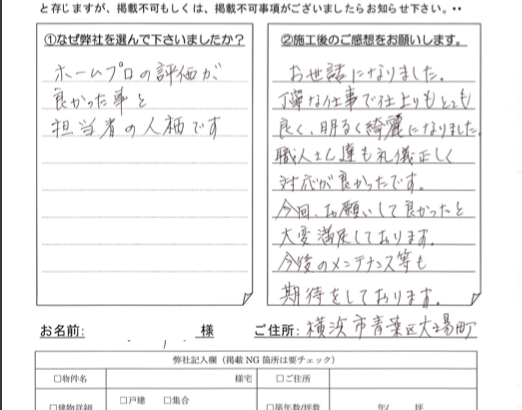 と存じますが、掲載不可もしくは、掲載不可事項がございましたらお知らせ下さい。••
①なぜ弊社を選んで下さいましたか？
ホームプロの評価が
良かった事と
担当者の人柄です
②施工後のご感想をお願いします。
お世話になりました。
丁寧な仕事で仕上りもとても
良く、明るく綺麗になりました。
職人さん達も礼儀正しく
対応が良かったです。
今回、お願いして良かったと
大変満足しております。
今後のメンテナンス等も
期待をしております。
お名前: 様 ご住所: 横浜市青葉区大場町
弊社記入欄（掲載 NG 箇所は要チェック）
□物件名 様宅 □ご住所
□建物詳細 □戸建 □集合 □築年数/坪数 年/ 坪